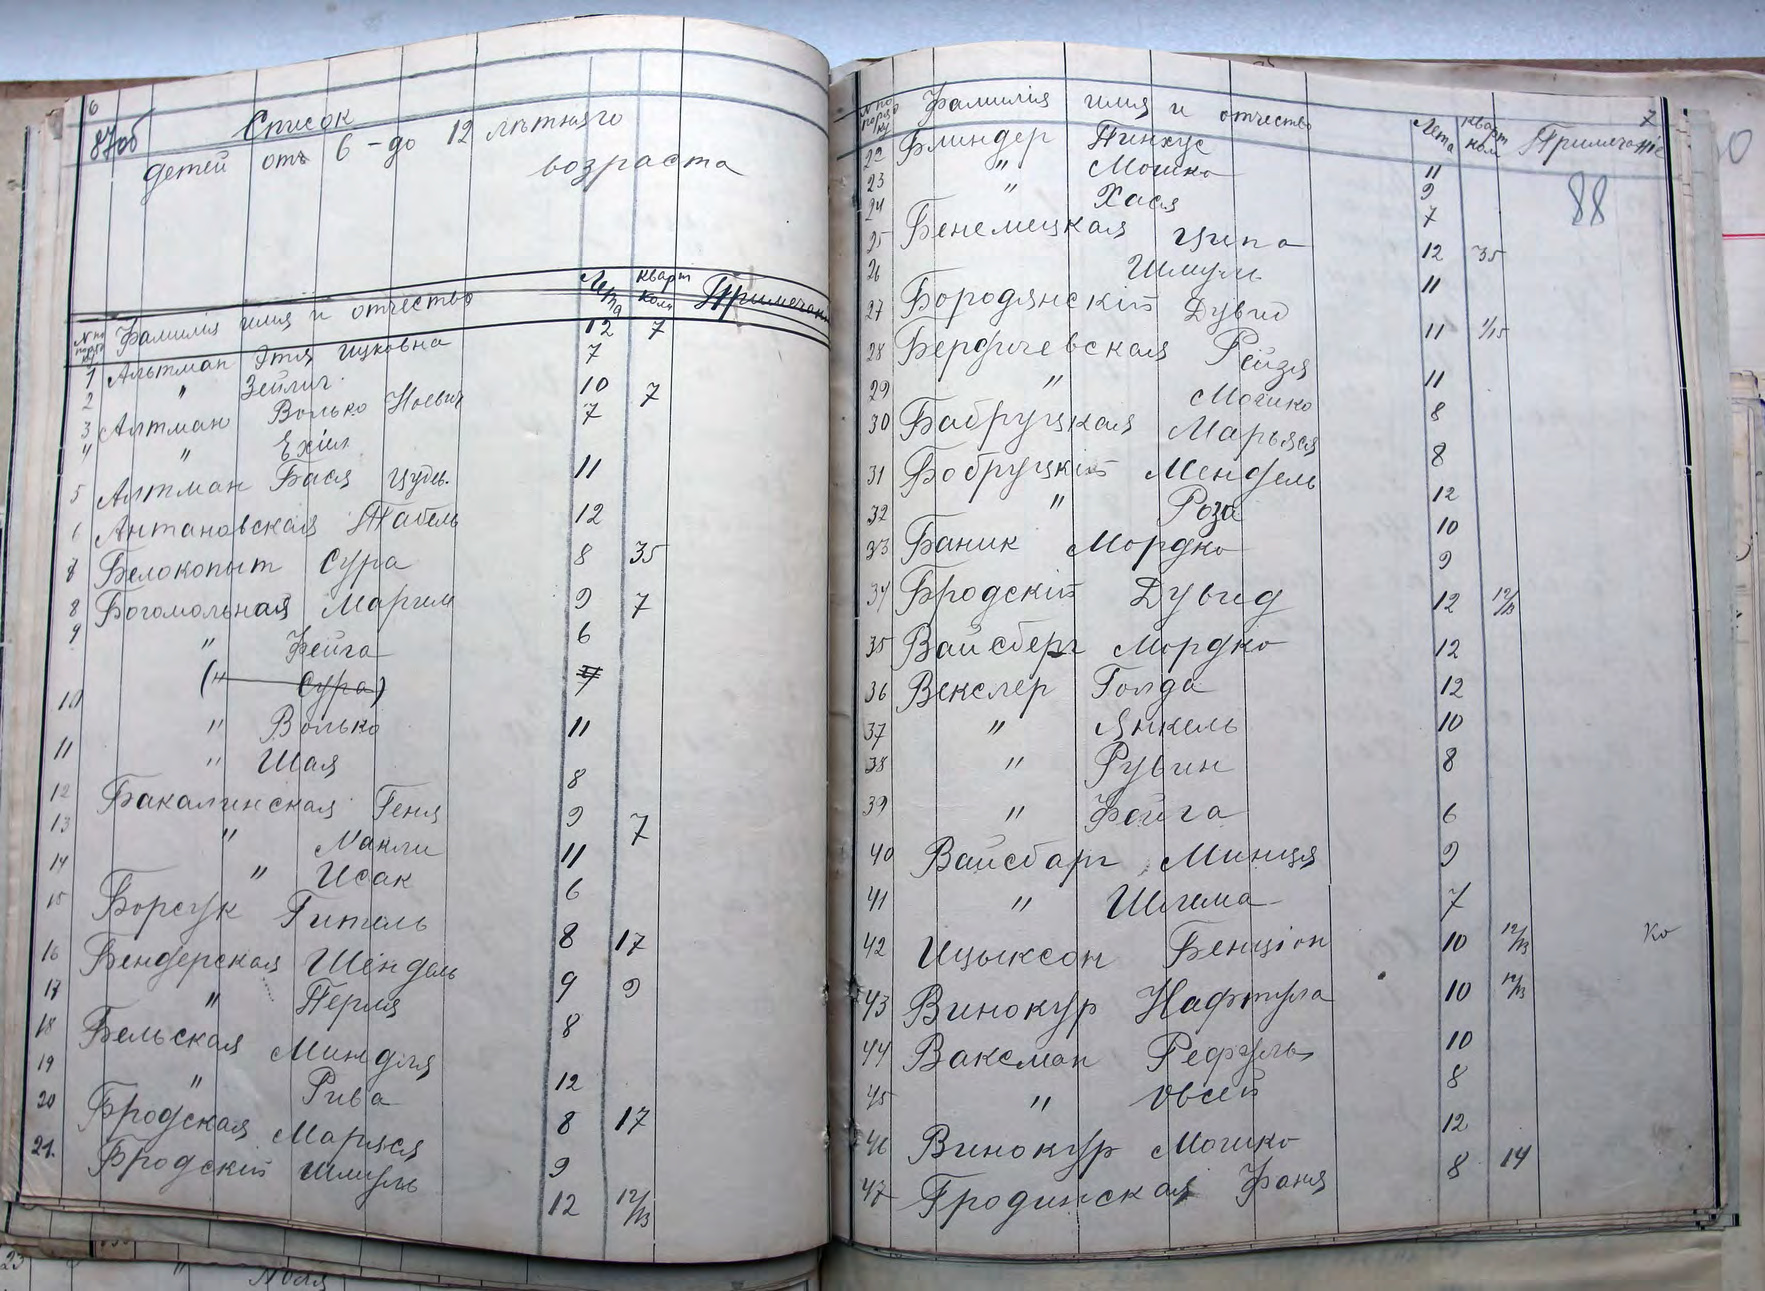 6
87об
Список
детей отъ 6 - до 12 лѣтняго
возраста
№ по порядку Фамилія имя и отчество Лета кварт колл Примечан
1 Альтман Этя Ицковна 12 7
2 " Зейлиг 7
3 Алтман Волько Ноевич 10 7
4 " Ехіил 7
5 Алтман Бася Цудьк. 11
6 Антановская Табель 12
7 Белокопыт Сура 8 35
8 Богомольная Марим 9 7
9 " Фейга 6
(" Сура) 7
10 " Волько 11
11 " Шая 8
12 Бакалинская Геня 9 7
13 " Макли 11
14 " Исак 6
15 Борсук Гитель 8 17
16 Бендерская Шендель 9 9
17 " Перля 8
18 Бельская Миндля 12
19 " Рива 8 17
20 Бродская Маряся 9
21. Бродскій Шмуль 12 12/13
7
№ по порядку Фамилія имя и отчество Лета кварт колл Примечаніе
88
22 Блиндер Пинхус 11
23 " Мошко 9
24 " Хася 7
25 Бенемецкая Ципа 12 35
26 Шмуль 11
27 Бородянскій Дувид 11 1/15
28 Бердичевская Рейзя 11
29 " Мошко 8
30 Бабруцкая Марьяся 8
31 Бобруцкій Мендель 12
32 " Роза 10
33 Баник Мордко 9
34 Бродскій Дувид 12 12/13
35 Вайсберг Мордко 12
36 Векслер Голда 12
37 " Янкель 10
38 " Рувин 8
39 " Фейга 6
40 Вайсбарг Минця 9
41 " Шлема 7
42 Ицыксон Бенціон 10 12/13
43 Винокур Нафтула 10 12/13
44 Ваксман Рефуль 10
45 " Овсей 8
46 Винокур Мошко 12
47 Гродинская Фаня 8 14
Ко